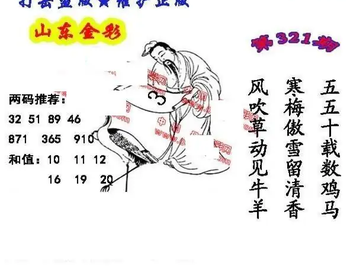 打击盗版 维护正版
山东金彩
第321期
两码推荐:
32 51 89 46
871 365 910
和值: 10 11 12
16 19 20
3
五五十载数鸡马
寒梅傲雪留清香
风吹草动见牛羊